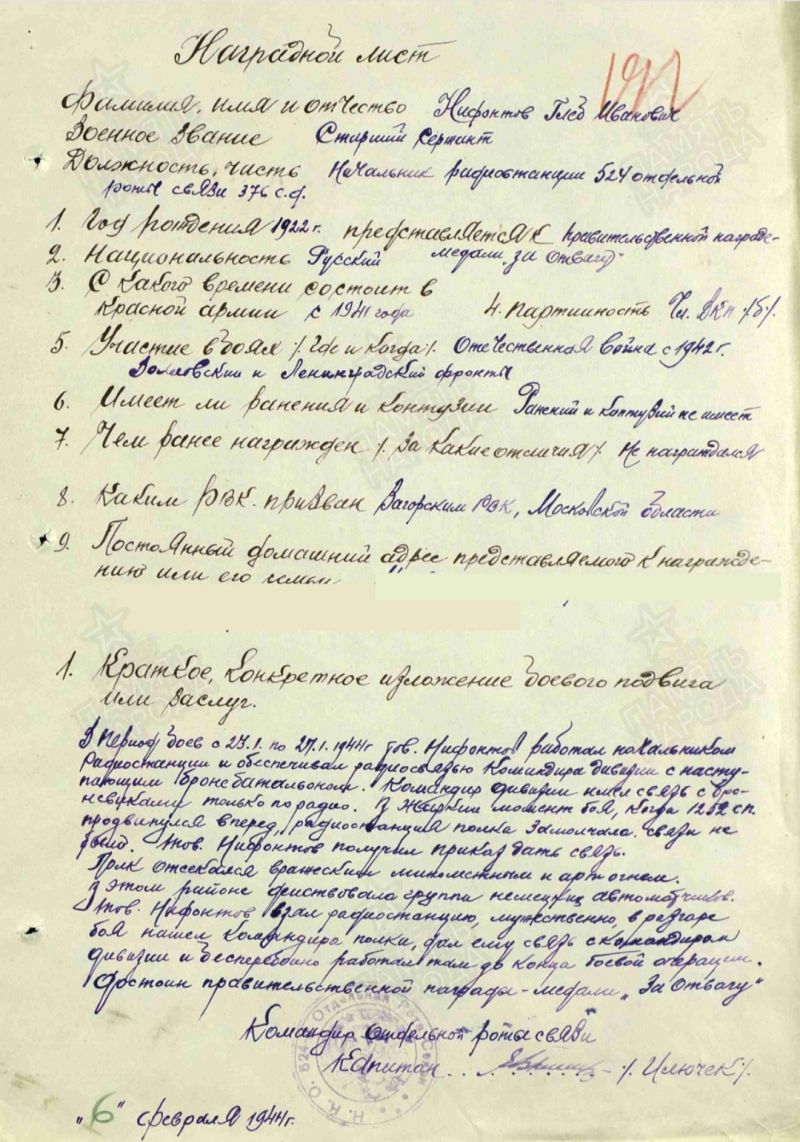 Наградной лист
Фамилия, имя и отчество Нифонтов Глеб Иванович
Военное звание Старший сержант
Должность, часть Начальник радиостанции 524 отдельной
роты связи 376 с.д.
1. Год рождения 1922 г. представляется к правительственной награде-
2. Национальность Русский медали „за отвагу"
3. С какого времени состоит в
Красной армии с 1941 года 4. Партийность Чл. ВКП /б/.
5. Участие в боях /. Где и когда /. Отечественная война с 1942 г.
Волховский и Ленинградский фронты
6. Имеет ли ранения и контузии Ранений и контузий не имеет
7. Чем ранее награжден /. За какие отличия /. Не награждался
8. Каким РВК. призван Загорским РВК, Московской области
9. Постоянный домашний адрес представляемого к награжде-
нию или его семьи
1. Краткое, конкретное изложение боевого подвига
или заслуг.
В период боев с 23.1. по 27.1. 1944г тов. Нифонтов работал начальником
радиостанции и обеспечивал радиосвязью командира дивизии с насту-
пающим бронебатальоном. Командир дивизии имел связь с бро-
невиками только по радио. В жаркий момент боя, когда 1252 сп.
продвинулся вперед, радиостанция полка замолчала. связи не
было. Тов. Нифонтов получил приказ дать связь.
Полк отсекался вражеским минометным и арт огнем.
В этом районе действовала группа немецких автоматчиков.
Тов. Нифонтов взял радиостанцию, мужественно, в разгаре
боя нашел командира полка, дал ему связь с командиром
дивизии и бесперебойно работал там до конца боевой операции.
Достоин правительственной награды - медали „За Отвагу"
Командир отдельной роты связи
Капитан /. Илючек /.
„6" февраля 1944г.
524 Отдельная Рота Связи Н.К.О.
ПАМЯТЬ НАРОДА